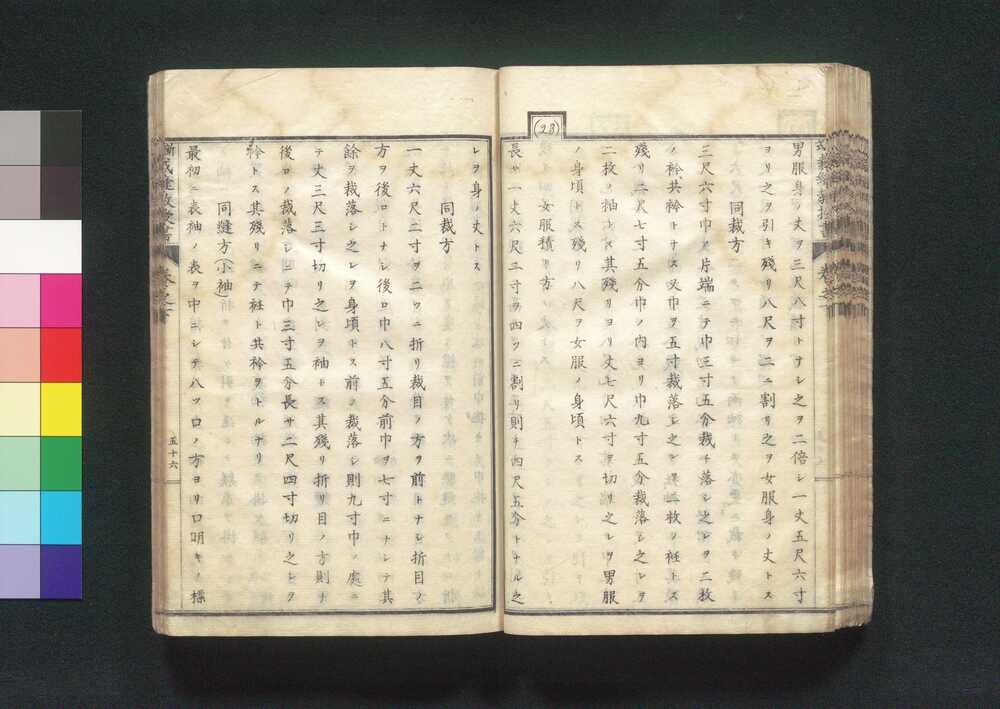 (28)
男服身ノ丈ヲ三尺八寸トナシ之ヲ二倍シ一丈五尺六寸
ヨリ之ヲ引キ残リ八尺ヲ二ニ割リ之ヲ女服身ノ丈トス
同裁方
三尺六寸巾ノ片端ニテ巾三寸五分裁チ落シ之レヲ二枚
ノ衿共衿トナス又巾ヲ五寸裁落シ之レ二枚ヲ衽トス
残リ二尺七寸五分巾ノ内ヨリ巾九寸五分裁落シ之レヲ
二枚ノ袖トス其残リヨリ丈七尺六寸ヲ切リ之レヲ男服
ノ身頃トス残リ八尺ヲ女服ノ身頃トス
女服積リ方
長サ一丈六尺二寸ヲ四ツニ割リ則チ四尺五分トナル之
レヲ身ノ丈トス
同裁方
一丈六尺二寸ヲ二ツニ折リ裁目ノ方ヲ前トナシ折目ノ
方ヲ後ロトナシ後ロ巾八寸五分前巾ヲ七寸ニナシテ其
餘ヲ裁落シ之レヲ身頃トス前ノ裁落シ則九寸巾ノ處ニ
テ丈三尺三寸切リ之レヲ袖トス其残リ折リ目ノ方則チ
後ロノ裁落シニテ巾三寸五分長サ二尺四寸切リ之レヲ
衿トス其残リニテ衽ト共衿ヲトルナリ
同縫方(小袖)
最初ニ表袖ノ表ヲ中ニシテ八ツ口ノ方ヨリ口明キノ標
五十六